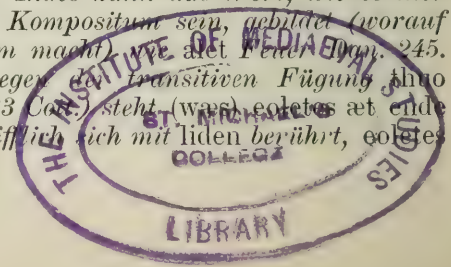 Kompositum sein, gebildet (worauf
m macht) wie alet Feuer Dan. 245.
egen da transitiven Fügung thuo
3 Co .) steht (wæs) eoletes æt ende
ifflich sich mit liden berührt, eoletes
THE INSTITUTE OF MEDIAEVAL STUDIES
ST. MICHAEL'S
COLLEGE
LIBRARY